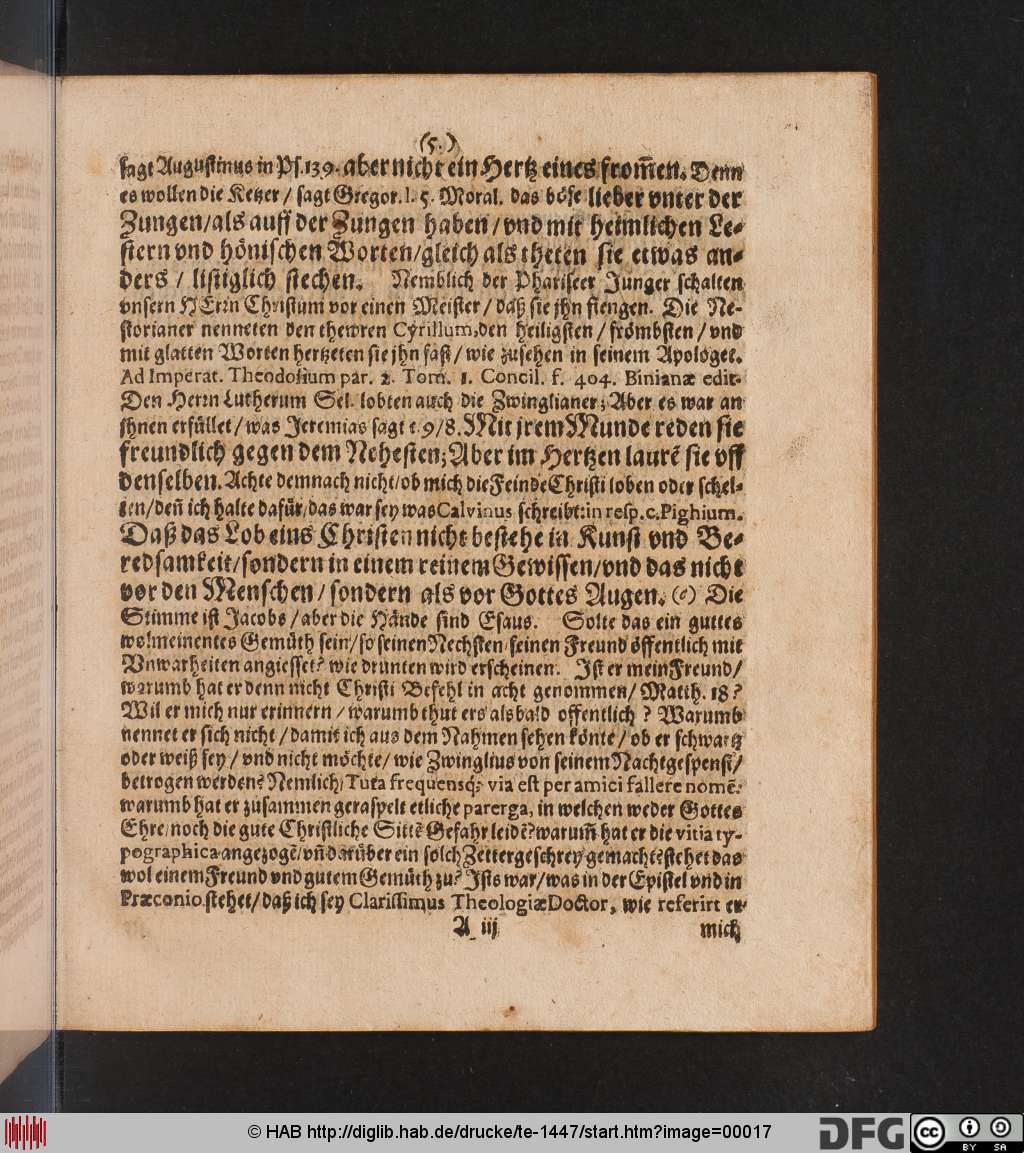 (5.)
sagt Augustinus in Ps. 139. aber nicht ein Hertz eines from̃en. Denn
es wollen die Ketzer / sagt Gregor. l. 5. Moral. das böse lieber vnter der
Zungen/als auff der Zungen haben / vnd mit heimlichen Le-
stern vnd hönischen Worten/gleich als theten sie etwas an-
ders / listiglich stechen. Nemblich der Phariseer Jünger schalten
vnsern HErrn Christum vor einen Meister / daß sie jhn fiengen. Die Ne-
storianer nenneten den thewren Cyrillum, den heiligsten / frömbsten / vnd
mit glatten Worten hertzeten sie jhn fast / wie zusehen in seinem Apologet.
Ad Imperat. Theodosium par. 2. Tom. 1. Concil. f. 404. Binianæ edit.
Den Herrn Lutherum Sel. lobten auch die Zwinglianer; Aber es war an
jhnen erfüllet / was Jeremias sagt c. 9/8. Mit jrem Munde reden sie
freundlich gegen dem Nehesten; Aber im Hertzen laurẽ sie vff
denselben. Achte demnach nicht/ob mich die Feinde Christi loben oder schel-
ten/deñ ich halte dafür/das war sey was Calvinus schreibt: in resp. c. Pighium.
Daß das Lob eins Christen nicht bestehe in Kunst vnd Be-
redsamkeit/sondern in einem reinem Gewissen/vnd das nicht
vor den Menschen / sondern als vor Gottes Augen. (o) Die
Stimme ist Jacobs / aber die Hände sind Esaus. Solte das ein guttes
wolmeinentes Gemüth sein/so seinen Nechsten/seinen Freund öffentlich mit
Vnwarheiten angiesset? wie drunten wird erscheinen. Ist er mein Freund/
warumb hat er denn nicht Christi Befehl in acht genommen/ Matth. 18?
Wil er mich nur erinnern / warumb thut ers alsbald offentlich? Warumb
nennet er sich nicht / damit ich aus dem Nahmen sehen könte / ob er schwartz
oder weiß sey / vnd nicht möchte/ wie Zwinglius von seinem Nachtgespenst/
betrogen werden? Nemlich/ Tuta frequensq; via est per amici fallere nomẽ.
warumb hat er zusammen geraspelt etliche parerga, in welchen weder Gottes
Ehre/noch die gute Christliche Sittẽ Gefahr leidẽ? warum̃ hat er die vitia ty-
pographica angezogẽ/vñ darüber ein solch Zettergeschrey gemacht? stehet das
wol einem Freund vnd gutem Gemüth zu? Ists war/was in der Epistel vnd in
Præconio stehet/daß ich sey Clarissimus Theologiæ Doctor, wie referirt er
A iij
mich
© HAB http://diglib.hab.de/drucke/te-1447/start.htm?image=00017
DFG
cc
BY SA